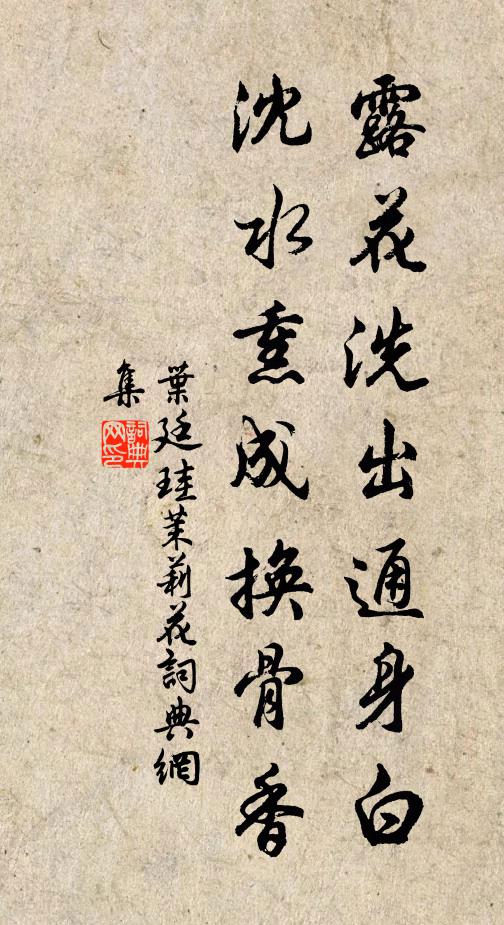 露花洗出通身白
沈水熏成換骨香
葉廷珪茉莉花詞典網
集
詞典
网印